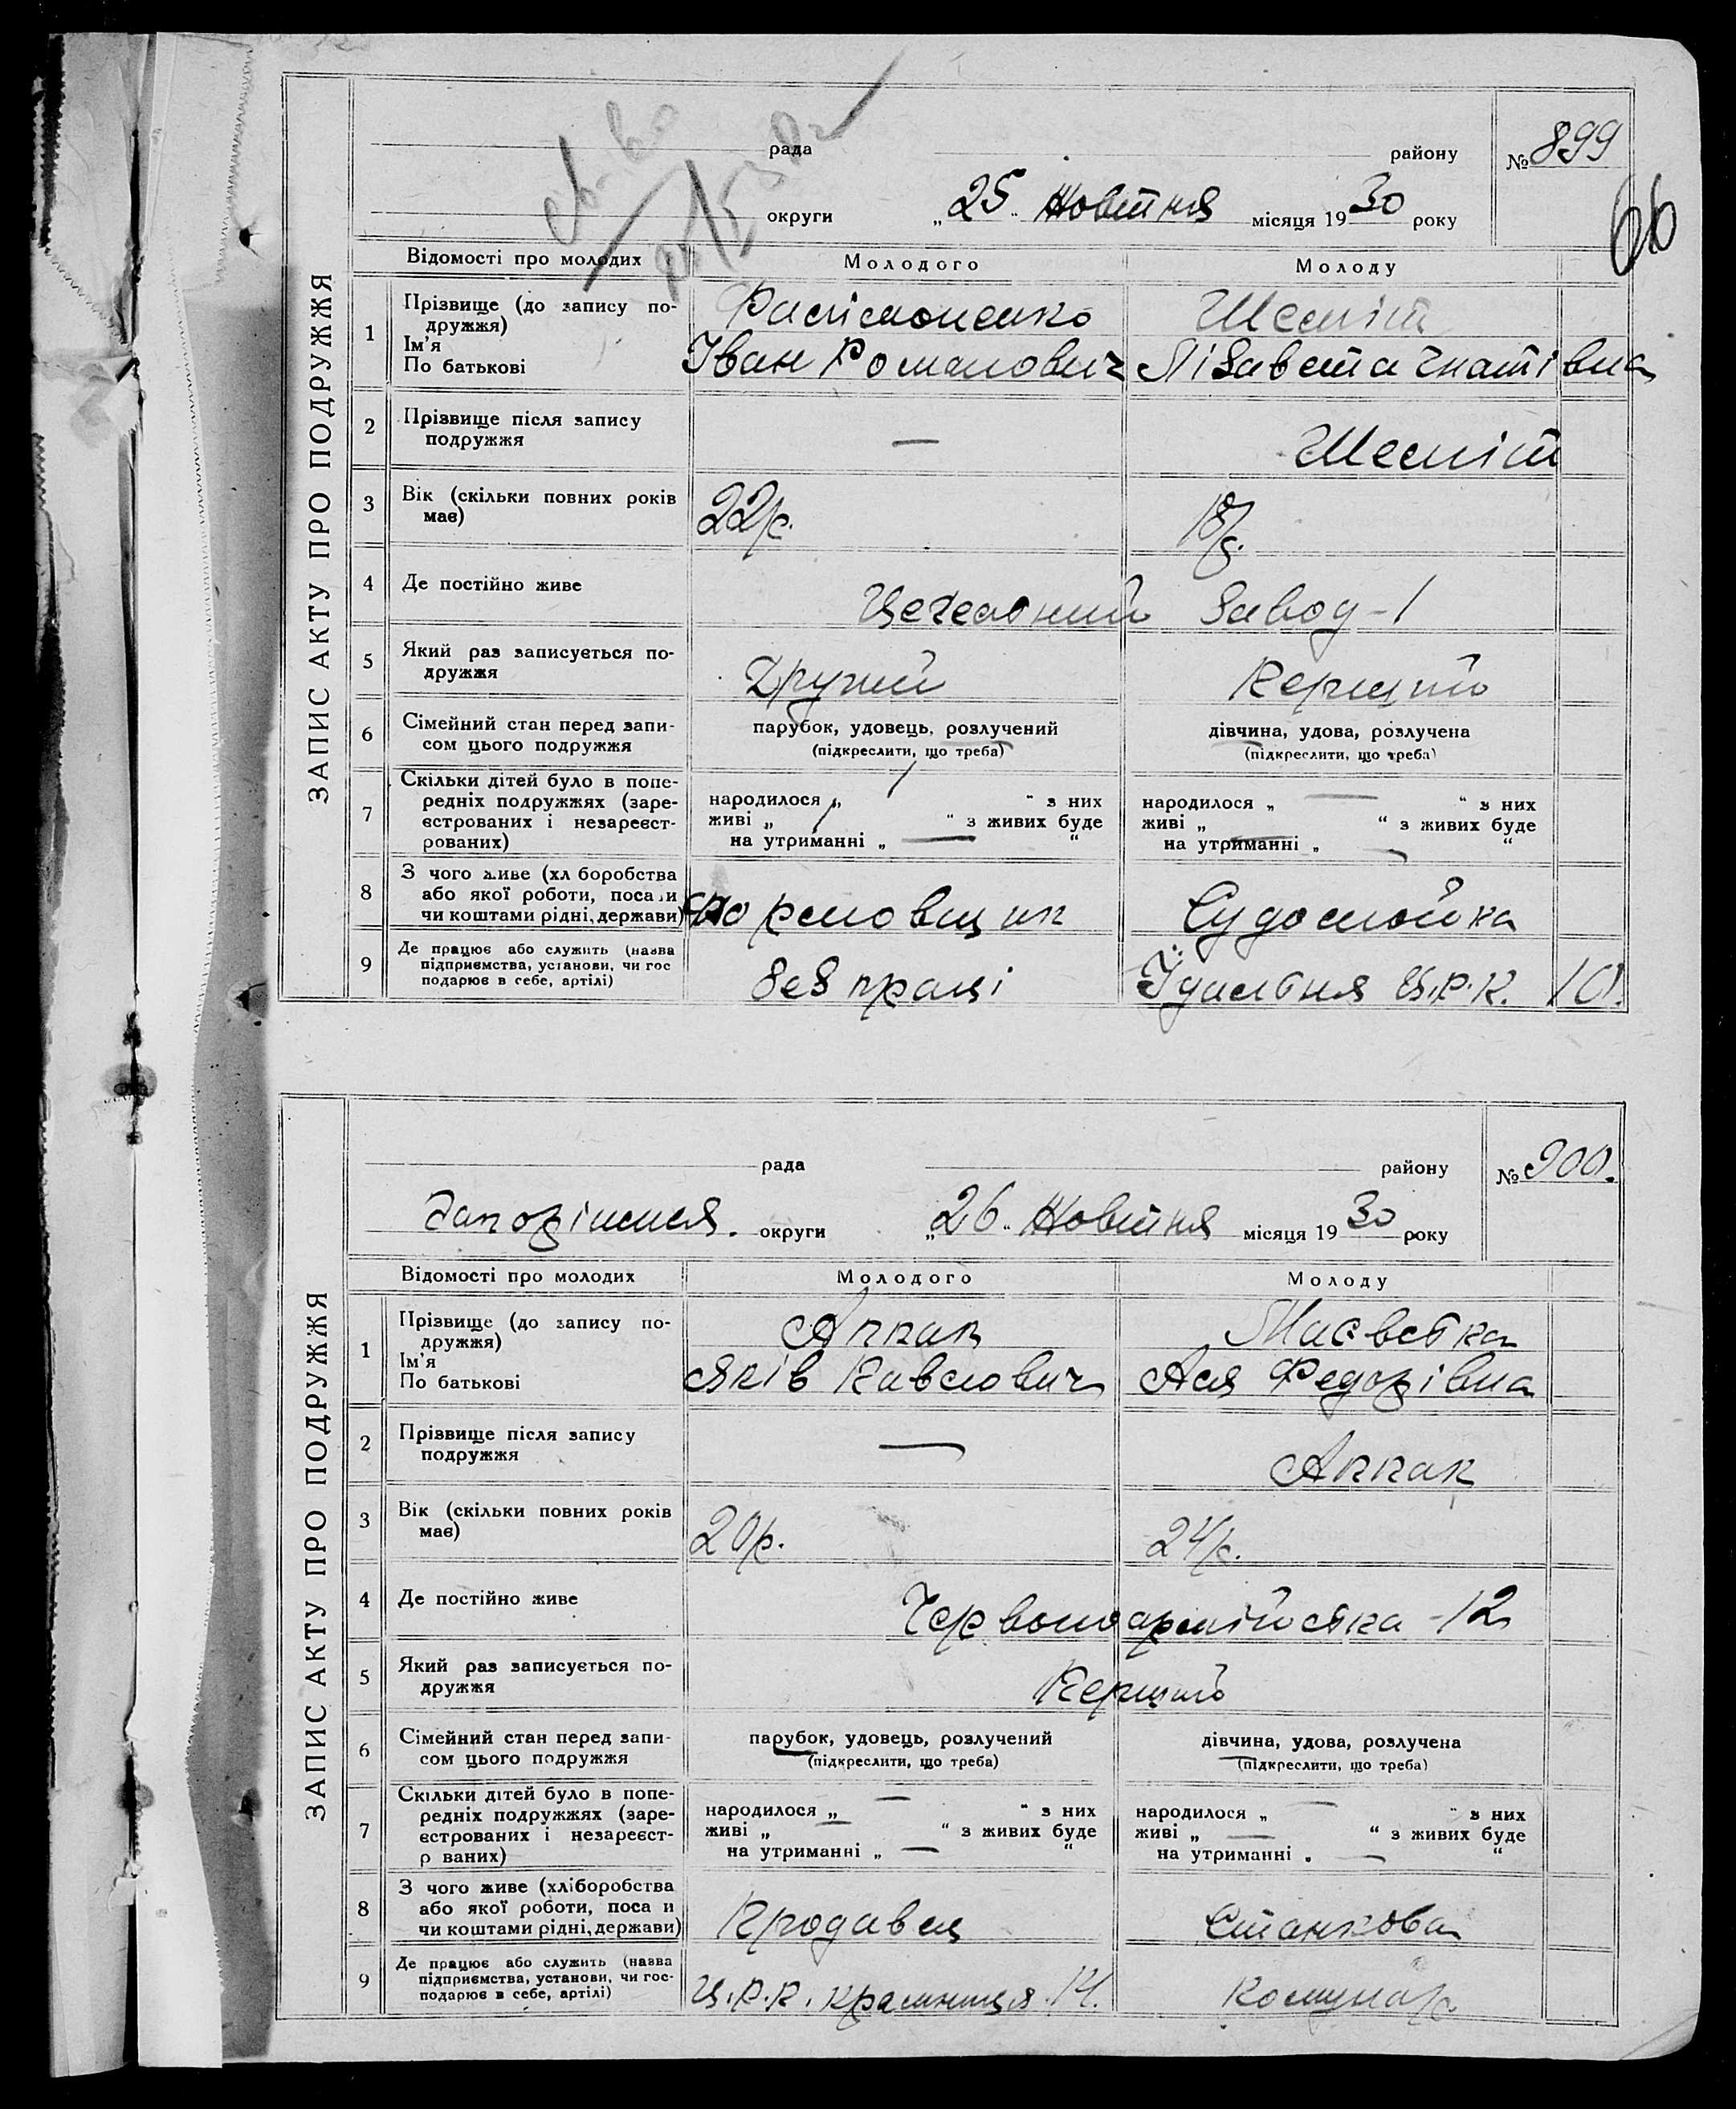 рада району №899
округи „25“ Жовтня місяця 1930 року
66
ЗАПИС АКТУ ПРО ПОДРУЖЖЯ
Відомості про молодих Молодого Молоду
1 Прізвище (до запису по-
дружжя)
Ім'я
По батькові
Филімоненко
Іван Романович Лізавета Гнатівна
2 Прізвище після запису
подружжя
—
3 Вік (скільки повних років
має)
22р. 18р.
4 Де постійно живе
Цегельний Завод-1
5 Який раз записується по-
дружжя
Другий Перший
6 Сімейний стан перед запи-
сом цього подружжя
парубок, удовець, розлучений
(підкреслити, що треба)
дівчина, удова, розлучена
(підкреслити, що треба)
7 Скільки дітей було в попе-
редніх подружжях (заре-
єстрованих і незареєст-
рованих)
народилося „ 1 “ з них
живі „ 1 “ з живих буде
на утриманні „ — “
народилося „ — “ з них
живі „ — “ з живих буде
на утриманні „ — “
8 З чого живе (хл боробства
або якої роботи, поса и
чи коштами рідні, держави)
Формовщик Судомойка
9 Де працює або служить (назва
підприємства, установи, чи гос
подарює в себе, артілі)
без праці Їдальня Ц.Р.К. 10.
рада району №900.
Запоріжжя. округи „26“ Жовтня місяця 1930 року
ЗАПИС АКТУ ПРО ПОДРУЖЖЯ
Відомості про молодих Молодого Молоду
1 Прізвище (до запису по-
дружжя)
Ім'я
По батькові
Аппак
Яків Павлович Ася Федорівна
2 Прізвище після запису
подружжя
— Аппак
3 Вік (скільки повних років
має)
20р. 24р.
4 Де постійно живе
Червоноармійська -12
5 Який раз записується по-
дружжя
Перший
6 Сімейний стан перед запи-
сом цього подружжя
парубок, удовець, розлучений
(підкреслити, що треба)
дівчина, удова, розлучена
(підкреслити, що треба)
7 Скільки дітей було в попе-
редніх подружжях (заре-
єстрованих і незареєст-
р ваних)
народилося „ — “ з них
живі „ — “ з живих буде
на утриманні „ — “
народилося „ — “ з них
живі „ — “ з живих буде
на утриманні „ — “
8 З чого живе (хліборобства
або якої роботи, поса и
чи коштами рідні, держави)
Продавец Станкова
9 Де працює або служить (назва
підприємства, установи, чи гос-
подарює в себе, артілі)
Ц.Р.К. крамниця 14. Комунар